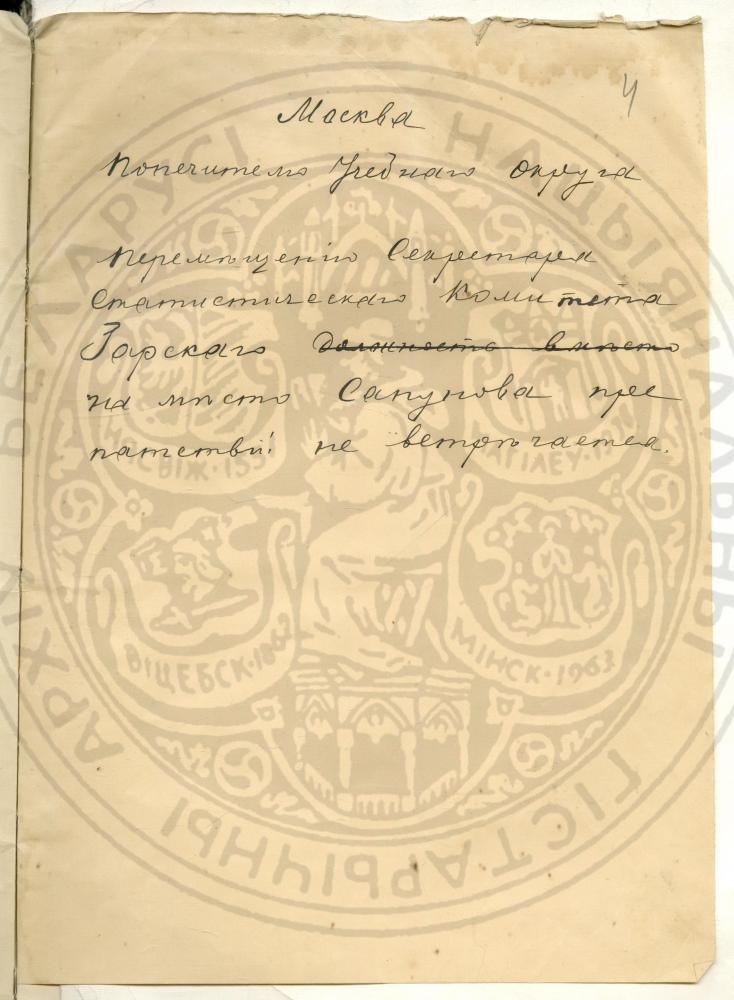 4
Москва
Попечителю Учебнаго Округа
Перемѣщенію Секретаря
Статистическаго Комитета
Зарскаго должность вмѣсто
на мѣсто Сапунова пре
пятствій не встрѣчается.
НАЦЫЯНАЛЬНЫ
ГІСТАРЫЧНЫ
АРХІЎ БЕЛАРУСІ
ВІЦЕБСК·1862
МІНСК·1963